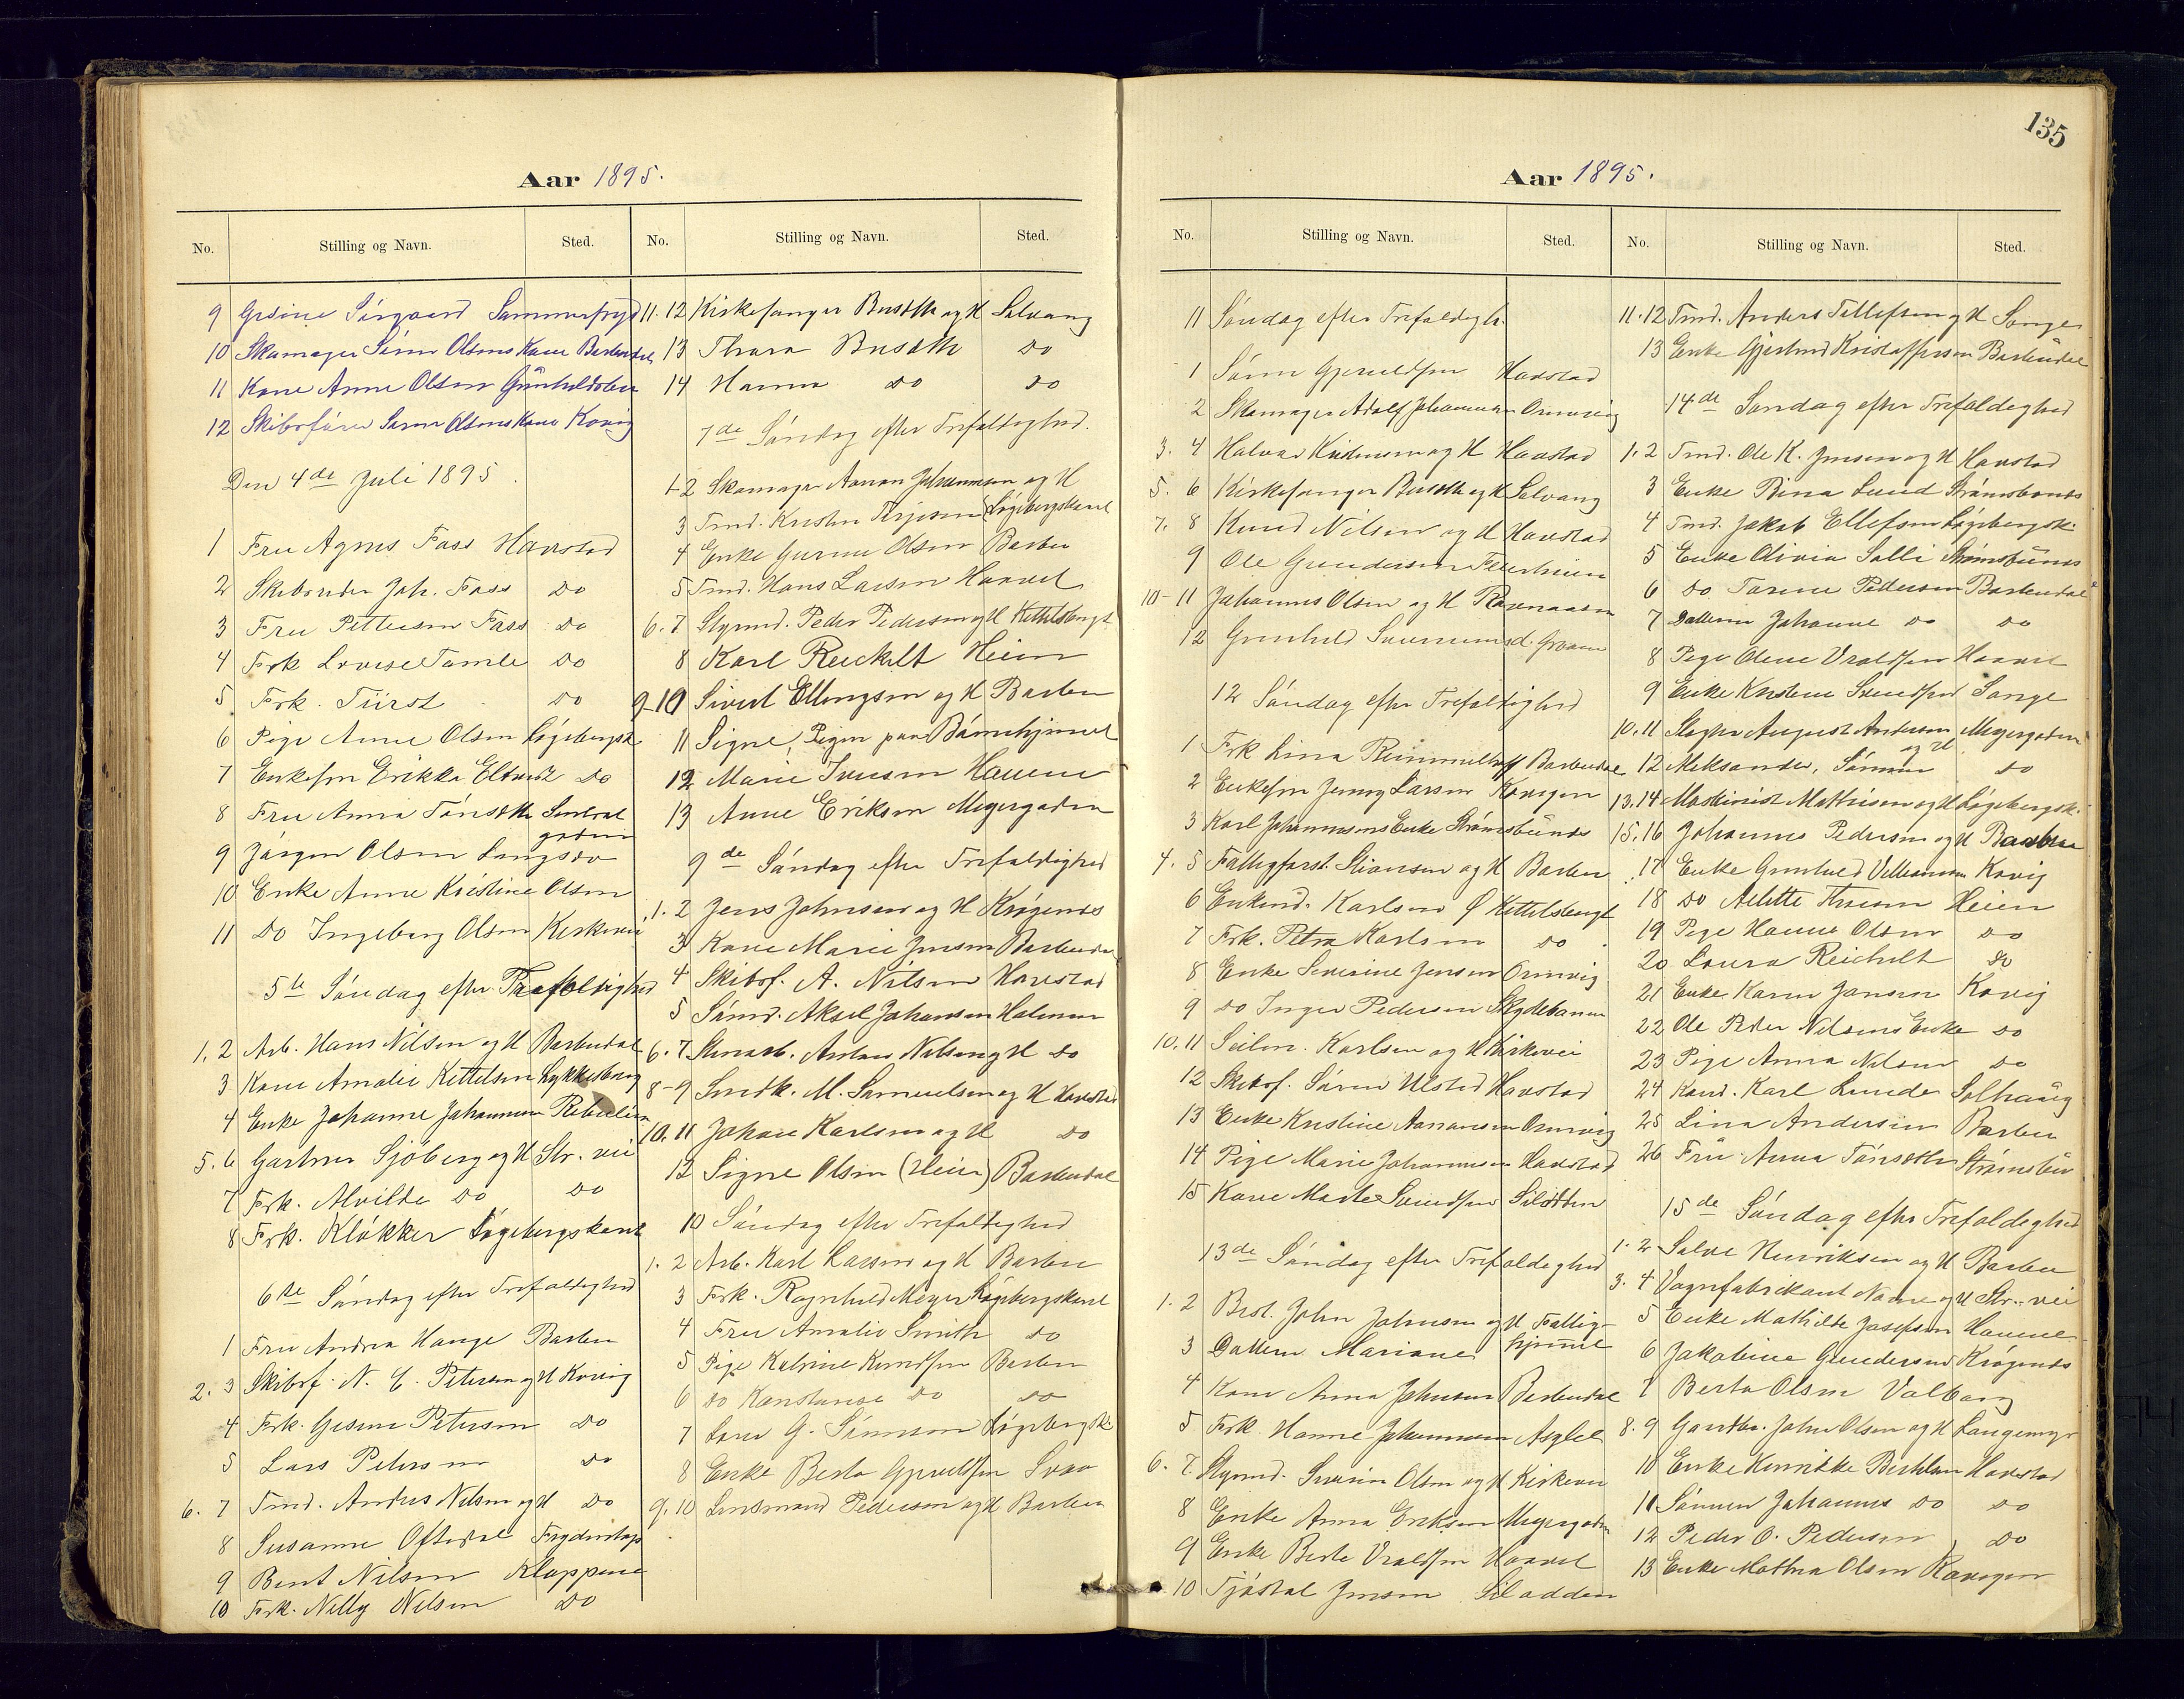 Aar 1895.
No. Stilling og Navn. Sted.
9 Gesine Sørgaard Sommerfryd
10 Skomager Søren Olsens Kone Barbudal
11 Kone Anne Olsen Gunhildsbu
12 Skibsfører Søren Olsens Kone Kovig
Den 4de Juli 1895.
1 Fru Agnes Foss Havstad
2 Skibsreder Joh. Foss do
3 Fru Pettersen Foss do
4 Frk Lovise Tomle do
5 Frk. Fürst do
6 Pige Anne Olsen Løgebergsk.
7 Enkefru Erikka do
8 Fru Anna Tønseth Sentral
gaden
9 Jørgen Olsen Langsæ
10 Enke Anne Kristine Olsen
11 do Ingeborg Olsen Kirkevei
5te Søndag efter Trefoldighed
1. 2 Arb. Hans Nilsen og H Barbudal
3 Kone Amalie Kittelsen Lykkesborg
4 Enke Johanne Johannesen
5. 6 Gartner Sjöberg og H Str. vei
7 Frk. Alvilde do do
8 Frk. Kløkker Løgebergskant
6te Søndag efter Trefoldighed
1 Fru Andrea Hauge Barbu
2. 3 Skibsf. N. C. Petersen og H Kovig
4 Frk. Gesine Petersen do
5 Lars Petersen do
6. 7 Tmd. Anders Nilsen og H do
8 Susanne Oftedal
9 Bent Nilsen Kloppene
10 Frk. Nelly Nilsen do
No. Stilling og Navn. Sted.
11. 12 Kirkesanger Buseth og H Solvang
13 Thora Buseth do
14 Hanna do do
7de Søndag efter Trefoldighed.
1-2 Skomager Aanon Johannesen og H
3 Tmd. Kristen Terjesen Løgebergskant
4 Enke Gurine Olsen Barbu
5 Tmd. Hans Larsen Haavet
6. 7 Styrmd. Peder Pedersen og H Kittelsbugt
8 Karl Reichelt Heien
9-10 Sivert Ellingsen og H Barbu
11 Signe, Pigen paa Børnehjemmet
12 Marie Iversen Havene
13 Anne Eriksen Meyergaden
9de Søndag efter Trefoldighed
1. 2 Jens Johnsen og H Krøgenes
3 Kone Marie Jensen Barbudal
4 Skibsf. A. Nilsen Havstad
5 Sømd. Aksel Johansen Holmen
6. 7 Stenarb. Anton Nilsen og H do
8-9 Smedk. M. Samuelsen og H Havstad
10. 11 Johan Karlsen og H do
12 Signe Olsen (Heien) Barbudal
10 Søndag efter Trefoldighed
1. 2 Arb. Karl Larsen og H Barbu
3 Frk. Ragnhild Meyer Løgebergskant
4 Fru Amalie Smith do
5 Pige Kathrine Knudsen Barbu
6 do Konstanse do do
7 Lars G. Simonsen Løgebergsk.
8 Enke Berta Gjeruldsen
9. 10 Lensmand Pedersen og H Barbu
135
Aar 1895.
No. Stilling og Navn. Sted.
11 Søndag efter Trefoldigh.
1 Søren Gjeruldsen Havstad
2 Skomager Adolf Johannesen Ormevig
3. 4 Halvor Kristensen og H Havstad
5. 6 Kirkesanger Buseth og H Solvang
7. 8 Knud Nilsen og H Havstad
9 Ole Gundersen
10-11 Johannes Olsen og H Ravnaasen
12 Gunhild
12 Søndag efter Trefoldighed
1 Frk Lina Rummelhoff Barbudal
2 Enkefru Jenny Larsen Kovigen
3 Karl Johannesens Enke Strømsbunes
4. 5 Fattigforst. Stiansen og H Barbu
6 Enkemd. Karlsen Ø Kittelsbugt
7 Frk. Petra Karlsen do
8 Enke Severine Jensen Ormevig
9 do Inger Pedersen Skydebanen
10. 11 Seilm. Karlsen og H Kirkevei
12 Skibsf. Søren Ulsted Havstad
13 Enke Kristine Aanonsen Ormevig
14 Pige Marie Johannesen Havstad
15 Kone Marte Svendsen Silodden
13de Søndag efter Trefoldighed
1. 2 Best. John Johnsen og H Fattig-
3 Datteren Mariane hjemmet
4 Kone Anna Johnsen Barbudal
5 Frk. Hanne Johannesen
6. 7. Styrmd. Severin Olsen og H Kirkevei
8 Enke Anna Eriksen Meyergaden
9 Enke Berte Vraldsen Haavet
10 Tjøstol Jensen Silodden
No. Stilling og Navn. Sted.
11. 12 Tmd. Anders Tellefsen og H Songe
13 Enke Gjertrud Kristoffersen Barbudal
14de Søndag efter Trefoldighed
1. 2 Tmd. Ole K. Jensen og H Havstad
3 Enke Lund Strømsbunes
4 Tmd. Jakob Ellefsen Løgebergsk.
5 Enke Olivia Salli Strømsbunes
6 do Torine Pedersen Barbudal
7 Datteren Johanne do do
8 Pige Oline Vraldsen Haavet
9 Enke Kristine Svendsen Songe
10. 11 Slagter August Andersen Meyergaden
og H
12 Aleksander, Sønnen do
13. 14 Maskinist Mathisen og H Løgebergsk.
15. 16 Johannes Pedersen og H Barbu
17 Enke Gunhild Villumsen Kovig
18 do Aslette Heien
19 Pige Hanne Olsen do
20 Laura Reichelt do
21 Enke Karen Jansen Kovig
22 Ole Peder Nilsens Enke do
23 Pige Anna Nilsen do
24 Kand. Karl Lunde Solhaug
25 Lina Andersen Barbu
26 Fru Anna Tønseth Strømsbu
15de Søndag efter Trefoldighed
1. 2 Salve Henriksen og H Barbu
3. 4 Vognfabrikant Næne og H Str. vei
5 Enke Mathilde Josefsen Havene
6 Jakobine Gundersen Krøgenes
7 Berta Olsen Valborg
8. 9 Gaardbr. John Olsen og H Langemyr
10 Enke Henrikke Havstad
11 Sønnen Johannes do do
12 Peder O. Pedersen do
13 Enke Mathea Olsen Kovigen